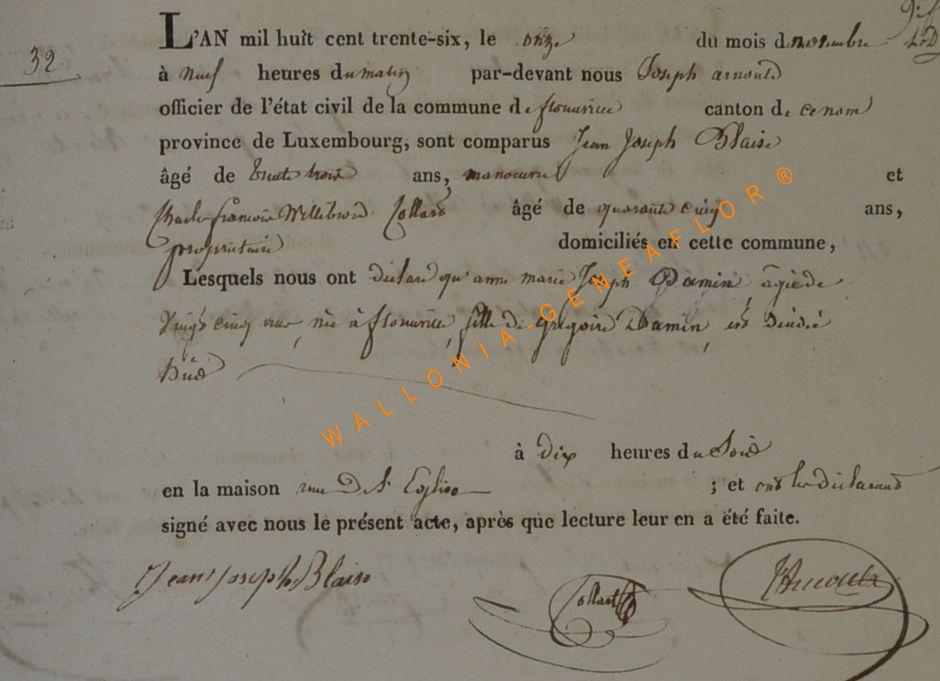 32
L'AN mil huit cent trente-six, le onze du mois de novembre
à neuf heures du matin par-devant nous Joseph arnould
officier de l'état civil de la commune de florenville canton de
province de Luxembourg, sont comparus Jean Joseph Blaise
âgé de trente trois ans, manoeuvre et
Charle françois Willibrord Collard âgé de quarante cinq ans,
proprietaire domiciliés en cette commune,
Lesquels nous ont déclaré qu'anne marie Joseph Damin âgée de
Vingt cinq ans, née à florenville, fille de gregoire Damin, est
à dix heures du Soir
en la maison rue De l'Eglise ; et ont les déclarants
signé avec nous le présent acte, après que lecture leur en a été faite.
Jean Joseph Blaise
Collart
WALLONIA-GENEAFLOR ®